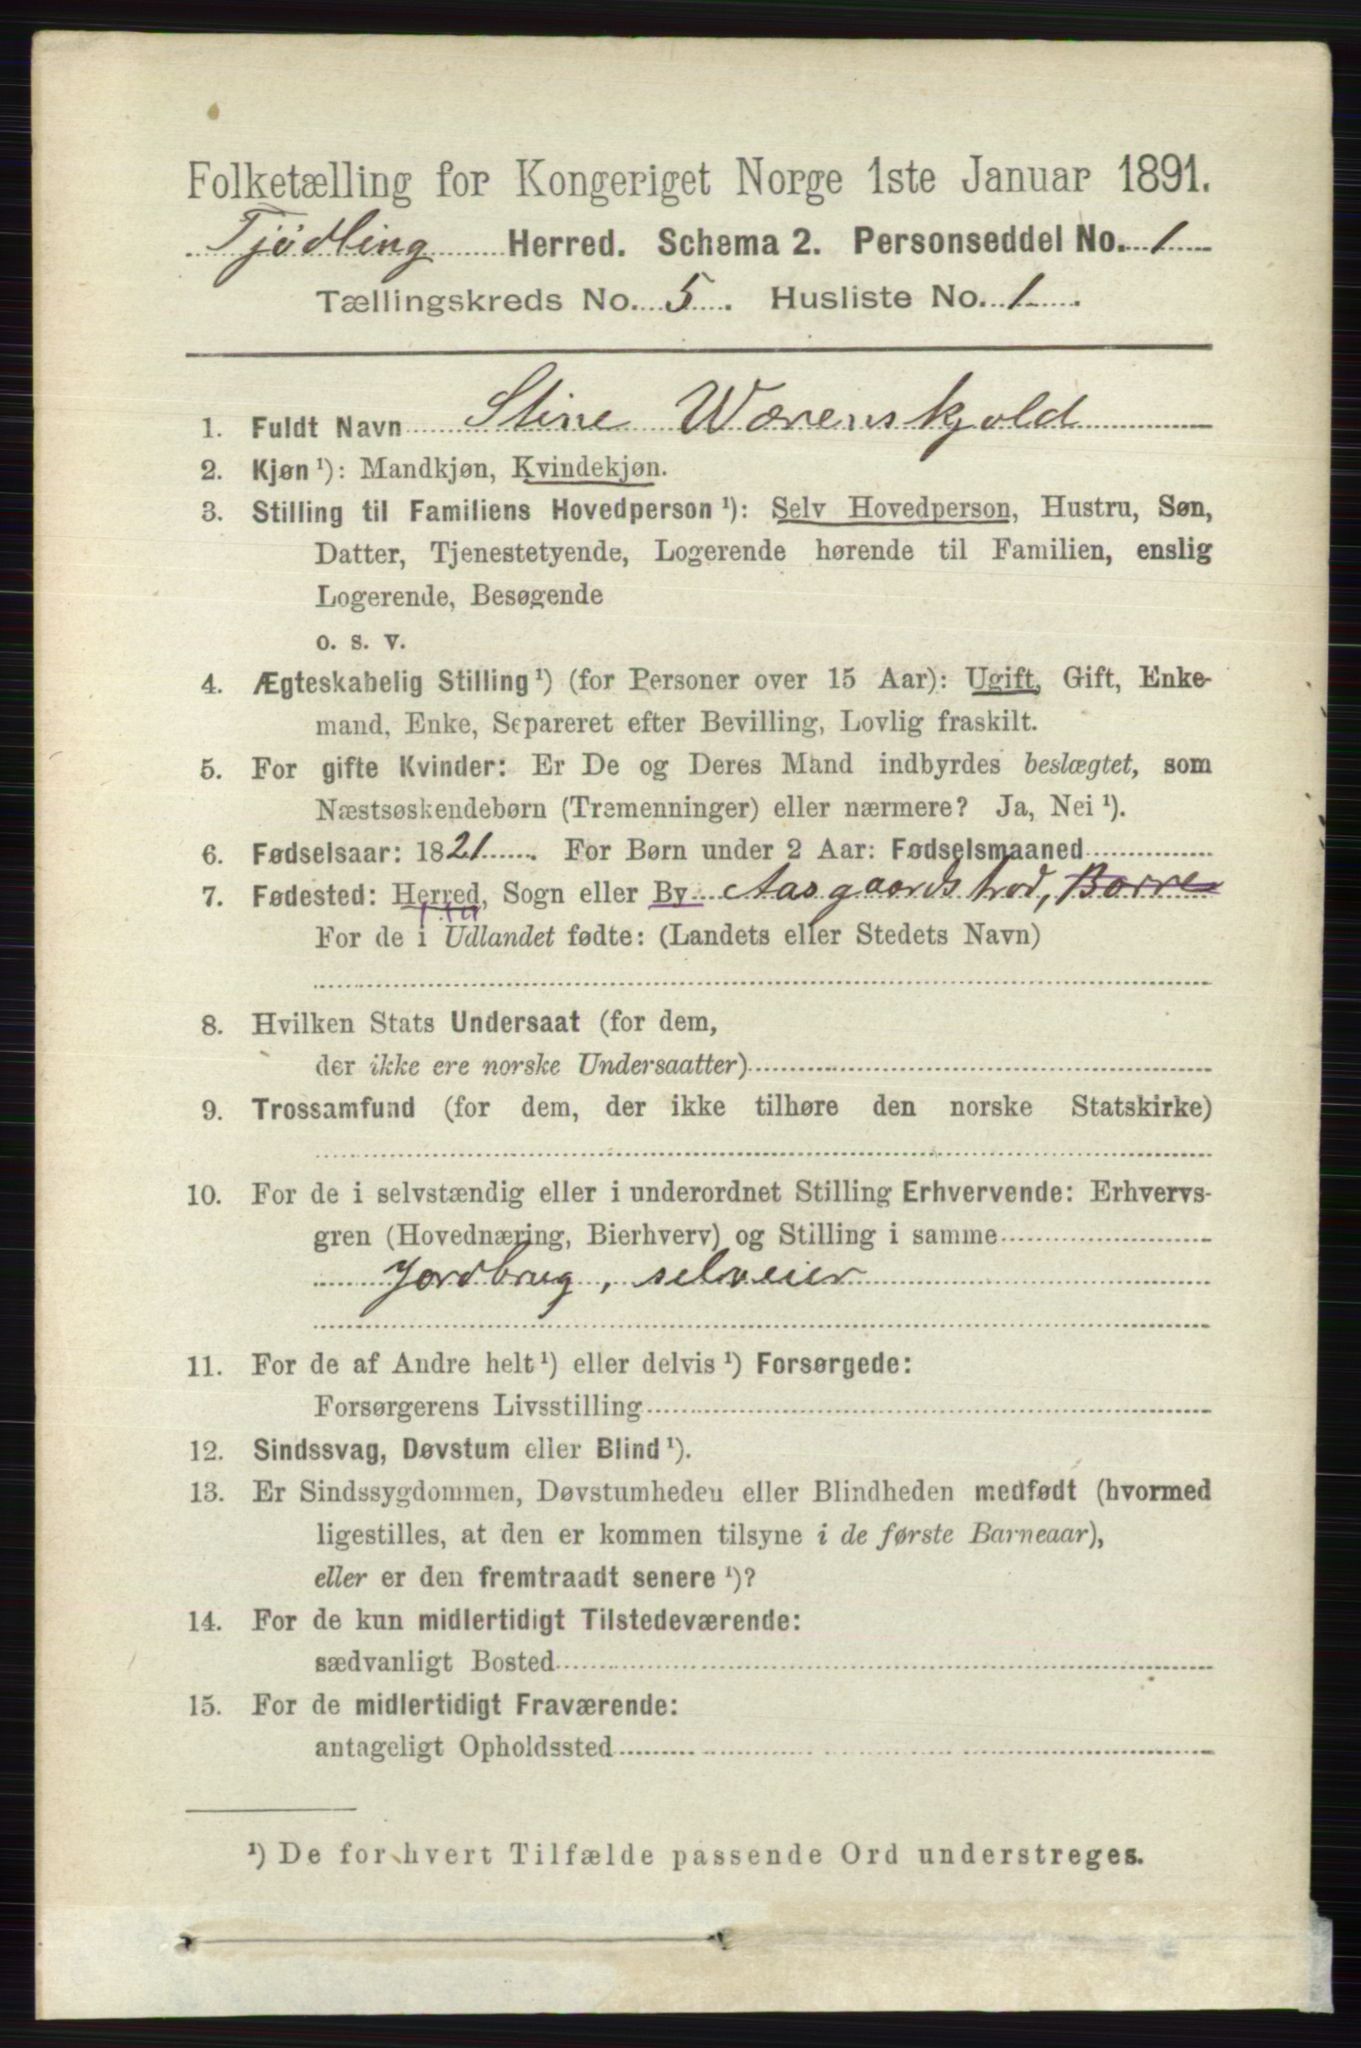 Folketælling for Kongeriget Norge 1ste Januar 1891.
Tjødling Herred. Schema 2. Personseddel No. 1
Tællingskreds No. 5. Husliste No. 1.
1. Fuldt Navn Stine Wærenskjold
2. Kjøn ¹): Mandkjøn, Kvindekjøn.
3. Stilling til Familiens Hovedperson ¹): Selv Hovedperson, Hustru, Søn,
Datter, Tjenestetyende, Logerende hørende til Familien, enslig
Logerende, Besøgende
o. s. v.
4. Ægteskabelig Stilling ¹) (for Personer over 15 Aar): Ugift, Gift, Enke-
mand, Enke, Separeret efter Bevilling, Lovlig fraskilt.
5. For gifte Kvinder: Er De og Deres Mand indbyrdes beslægtet, som
Næstsøskendebørn (Tremenninger) eller nærmere? Ja, Nei ¹).
6. Fødselsaar: 1821. For Børn under 2 Aar: Fødselsmaaned
7. Fødested: Herred, Sogn eller By Aasgaardstrand, Borre
For de i Udlandet fødte: (Landets eller Stedets Navn)
8. Hvilken Stats Undersaat (for dem,
der ikke ere norske Undersaatter)
9. Trossamfund (for dem, der ikke tilhøre den norske Statskirke)
10. For de i selvstændig eller i underordnet Stilling Erhvervende: Erhvervs-
gren (Hovednæring, Bierhverv) og Stilling i samme
Jordbrug, selveier
11. For de af Andre helt ¹) eller delvis ¹) Forsørgede:
Forsørgerens Livsstilling
12. Sindssvag, Døvstum eller Blind ¹).
13. Er Sindssygdommen, Døvstumheden eller Blindheden medfødt (hvormed
ligestilles, at den er kommen tilsyne i de første Barneaar),
eller er den fremtraadt senere ¹)?
14. For de kun midlertidigt Tilstedeværende:
sædvanligt Bosted
15. For de midlertidigt Fraværende:
antageligt Opholdssted
¹) De for hvert Tilfælde passende Ord understreges.